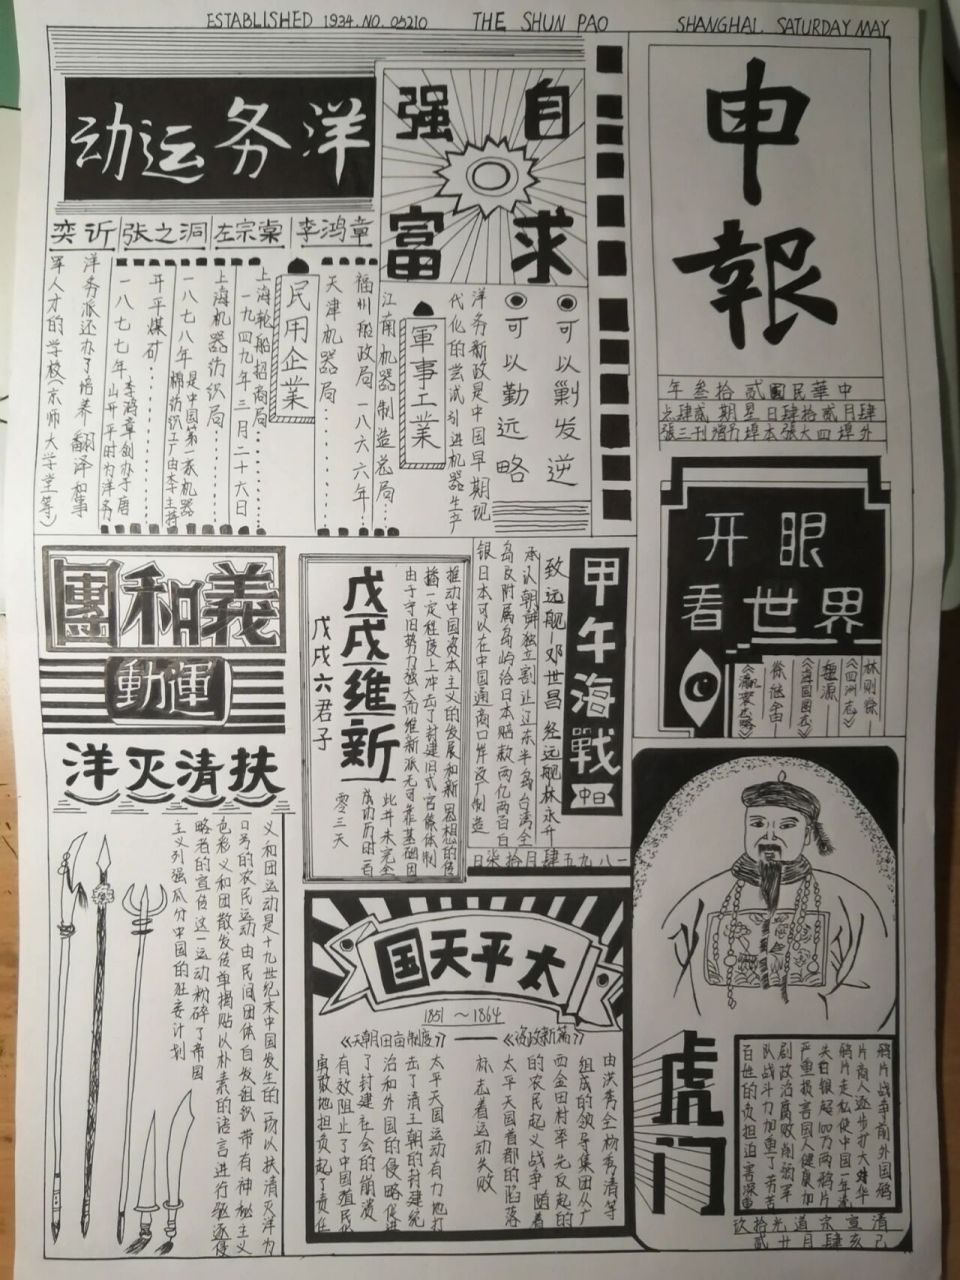 ESTABLISHED 1934.NO. 05210 THE SHUN PAO SHANGHAI. SATURDAY MAY
申
報
中華民國貳拾叁年
外埠四大張本埠另增刊三張
洋务运动
自强
求富
李鸿章
左宗棠
张之洞
奕訢
可以剿发逆
可以勤远略
洋务新政是中国早期现
代化的尝试引进机器生产
軍事工業
江南机器制造总局
福州船政局一八六六年
天津机器局
民用企業
上海轮船招商局
一九四九年三月二十六日
上海机器纺织局
一八七八年是中国第一家机器
棉纺织工厂由李主持
开平煤矿
一八七七年李鸿章创办于唐
山开平时为洋务
洋务派还办了培养翻译和军事
军人才的学校(京师大学堂等)
开眼
看世界
林则徐
《四洲志》
魏源
《海国图志》
徐继畬
《瀛寰志略》
甲午海戰
中日
致远舰—邓世昌 经远舰林永升
承认朝鲜独立割让辽东半岛台湾全
岛及附属岛屿给日本赔款两亿两白
银日本可以在中国通商口岸设厂制造
一八九五肆月拾柒日
戊戌维新
戊戌六君子
推动中国资本主义的发展和新思想的传
播一定程度上冲击了封建旧式官僚体制
由于守旧势力强大而维新派无可靠基础因
此并未完全
成功历时一百
零三天
義和團
運動
扶清灭洋
义和团运动是十九世纪末中国发生的一场以扶清灭洋为
口号的农民运动由民间团体自发组织带有神秘主义
色彩义和团散发传单揭贴以朴素的语言进行驱逐侵
略者的宣传这一运动粉碎了帝国
主义列强瓜分中国的狂妄计划
太平天国
1851 ～ 1864
《天朝田亩制度》——《资政新篇》
由洪秀全杨秀清等
组成的领导集团从广
西金田村率先反起的
的农民起义战争随着
太平天国首都的陷落
标志着运动失败
太平天国运动有力地打
击了清王朝的封建统
治和外国的侵略促进
了封建社会的崩溃
有效阻止了中国殖民化
勇敢地担负起了责任
虎门
鸦片战争前外国鸦
片商人逐步扩大对华
鸦片走私使中国一年流
失白银超100万两鸦片
严重损害国人健康加
剧政治腐败削弱军
队战斗力加重了劳苦
百姓的负担迫害深重
清宣宗道光拾玖
己亥肆月廿贰